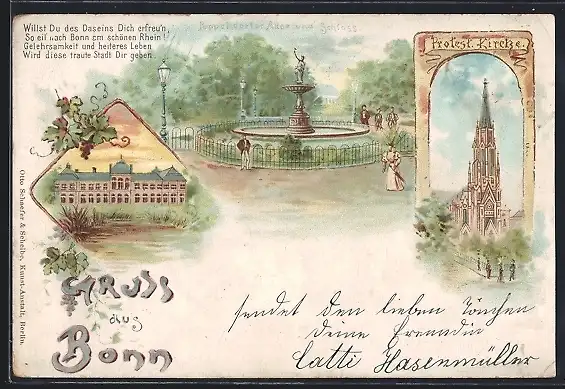 Willst Du des Daseins Dich erfreu'n,
So eil nach Bonn am schönen Rhein!
Gelehrsamkeit und heiteres Leben
Wird diese traute Stadt Dir geben.
Poppelsdorfer Allee und Schloss
Protest. Kirche.
Otto Schaefer & Scheibe, Kunst-Anstalt, Berlin.
Gruss
aus
Bonn
sendet den lieben
deine Freundin
Hasenmüller